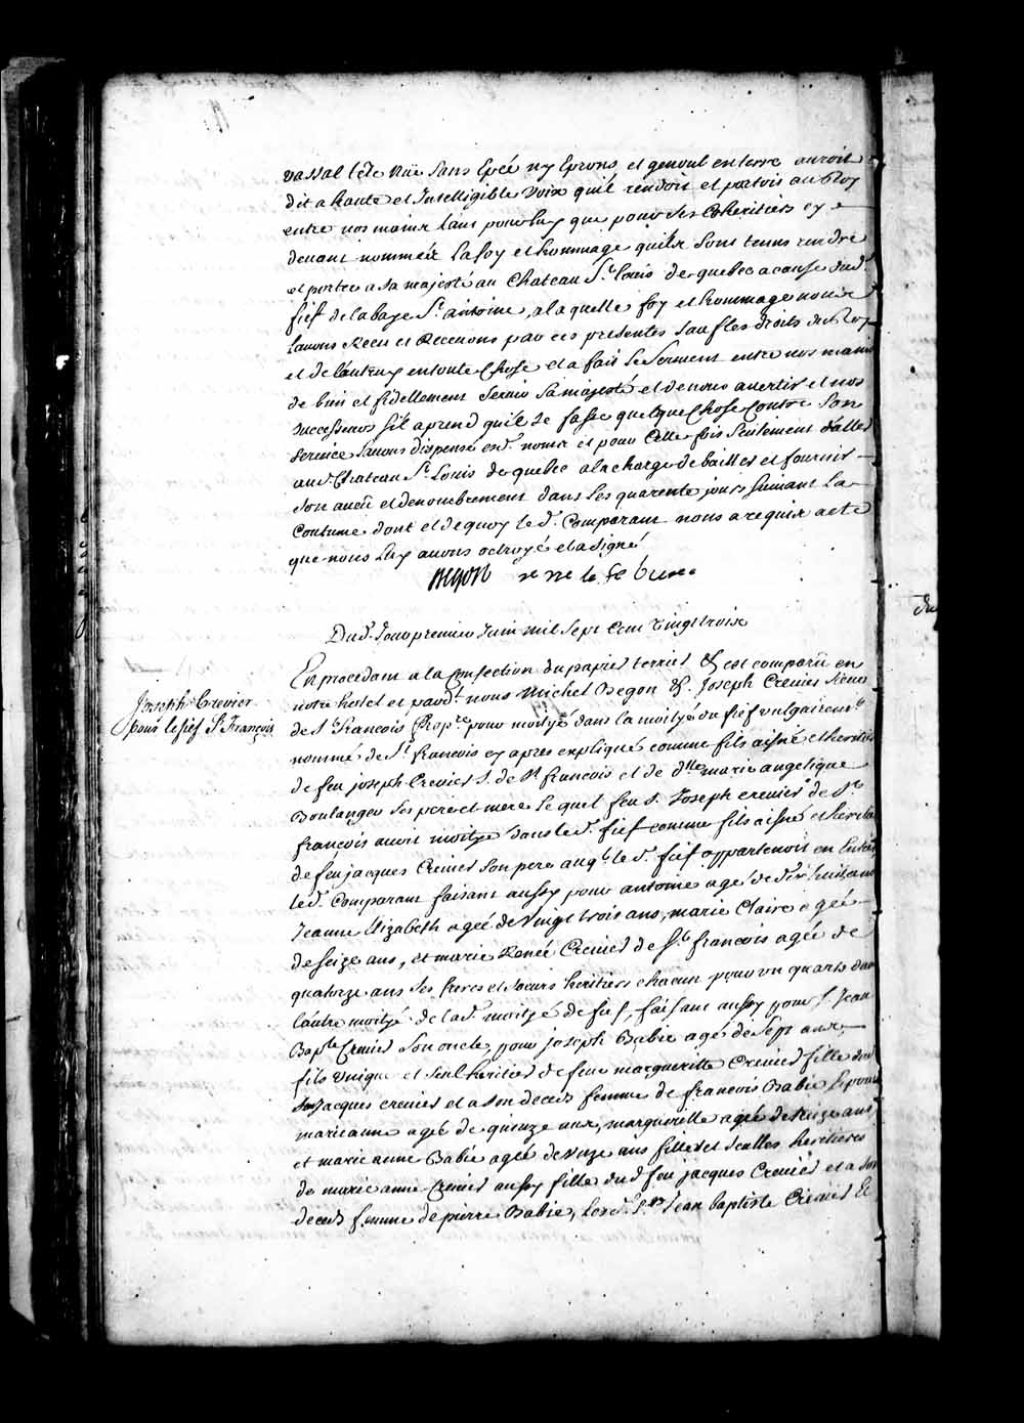 vassal tête Nüe sans Epée ny Eprons, et genoul en terre auroit
dit a haute et Intelligible Voix qu'il rendoit et portoit au Roy
entre nos mains tant pour luy que pour ses Coheritiers cy
devant nommés la foy et hommage qu'ils sont tenus rendre
et porter a sa majesté au Chateau St. louis de quebec a cause dud.
fief de la baye St. antoine, a laquelle foy et hommage nous
l'avons Receu et Recevons par ces presentes sauf les droits du Roy
et de l'autruy en toute Chose et a fait le Serment entre nos mains
de bien et fidellement servir sa majesté et de nous avertir et nos
successeurs s'il aprend qu'il se fasse quelque Chose Contre son
service, l'avons dispensé esd. noms et pour Cette fois seulement d'aller
aud. Chateau St. Louis de quebec a la charge de bailler et fournir
son aveü et denombrement dans les quarente jours suivant la
Coutume dont et de quoy led. Comparant nous a requis acte
que nous luy avons octroyé et a signé
Begon rene le febure
Dud. Jour premier Juin mil sept Cent vingt trois
En procedant a la Confection du papier terrier &c est comparü en
notre hotel et pard.t nous Michel Begon &c. Joseph Crevier Sieur
Joseph Crevier
pour le fief St François
de St. francois Prop.re pour moityé dans la moityé du fief vulgairem.t
nommé de St. francois cy apres expliqué comme fils aisné et heritier
de feu joseph Crevier S. de St francois et de d.lle marie angelique
Boulanger ses pere et mere lequel feu S. Joseph crevier de St.
françois avoit moitye dans led. fief comme fils aisné et heritier
de feu jacques Crevier son pere auq.l led. fief appartenoit en
led. Comparant faisant aussy pour antoine agé de dix huit ans
Jeanne Elizabeth agée de Vingt trois ans, marie Claire agée
de seize ans, et marie Renée Crevier de St. francois agée de
quatorze ans ses freres et soeurs heritiers chacun pour un quart dans
l'autre moityé de lad. moityé de fief, faisant aussy pour S. Jean
Bap.te Crevier son oncle, pour joseph Babie agé de sept ans
fils Unique et seul heritier de feue marguerite Crevier fille dud.
feu Jacques crevier et a son deces femme de francois Babie, pour
marie anne agée de quinze ans, marguerite agée de treize ans
et marie anne Babie agée de onze ans filles et seulles heritieres
de marie anne Crevier aussy fille dud feu jacques Crevier et a son
deces femme de pierre Babie, lesd. Srs Jean baptiste Crevier Et